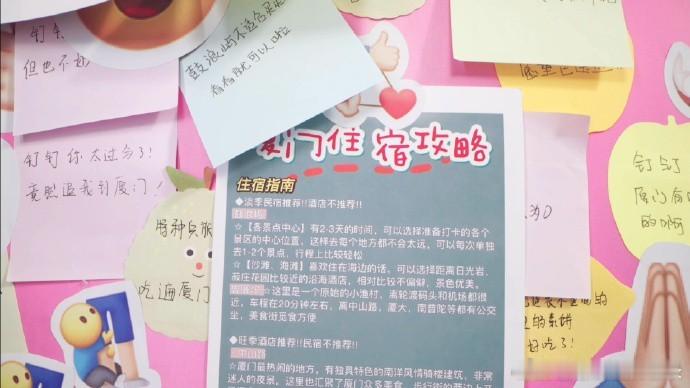 鼓浪屿不适合
看看就可以啦
但也不
钉钉你太过分了！
竟然逼我到厦门！
特种兵旅
吃遍厦门
厦门住宿攻略
住宿指南
◆淡季民宿推荐!!酒店不推荐!!
☆【各景点中心】有2-3天的时间，可以选择准备打卡的各个
景区的中心位置，这样去每个地方都不会太远，可以每次单独
去1-2个景点，行程上比较轻松
☆【沙滩、海滩】喜欢住在海边的话，可以选择距离日光岩、
菽庄花园比较近的沿海酒店，相对比较不偏僻，景色优美。
☆这里是一个原始的小渔村，离轮渡码头和机场都很
近，车程在20分钟左右，离中山路，厦大、南普陀等都有公交
坐，美食街觅食方便
◆旺季酒店推荐!!民宿不推荐!!
☆厦门最热闹的地方，有独具特色的南洋风情骑楼建筑，非常
迷人的夜景，这里也汇聚了厦门众多美食
钉钉
厦门有
的啊
好吃了！